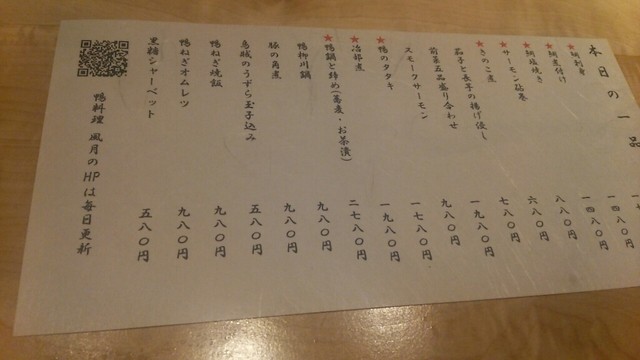 本日の一品
★鯛刺身
★鯛煮付け 一四八〇円
★鯛塩焼き 一四八〇円
★サーモン砧巻 八八〇円
★きのこ煮 六八〇円
茄子と長芋の揚げ浸し 七八〇円
前菜五品盛り合わせ 一九八〇円
スモークサーモン 九八〇円
★鴨のタタキ 一七八〇円
★冶部煮 一九八〇円
★鴨鍋と〆め(蕎麦・お茶漬) 二七八〇円
鴨柳川鍋 九八〇円
豚の角煮 九八〇円
烏賊のうずら玉子込み 五八〇円
鴨ねぎ焼飯 九八〇円
鴨ねぎオムレツ 九八〇円
黒糖シャーベット 五八〇円
鴨料理 風月のHPは毎日更新